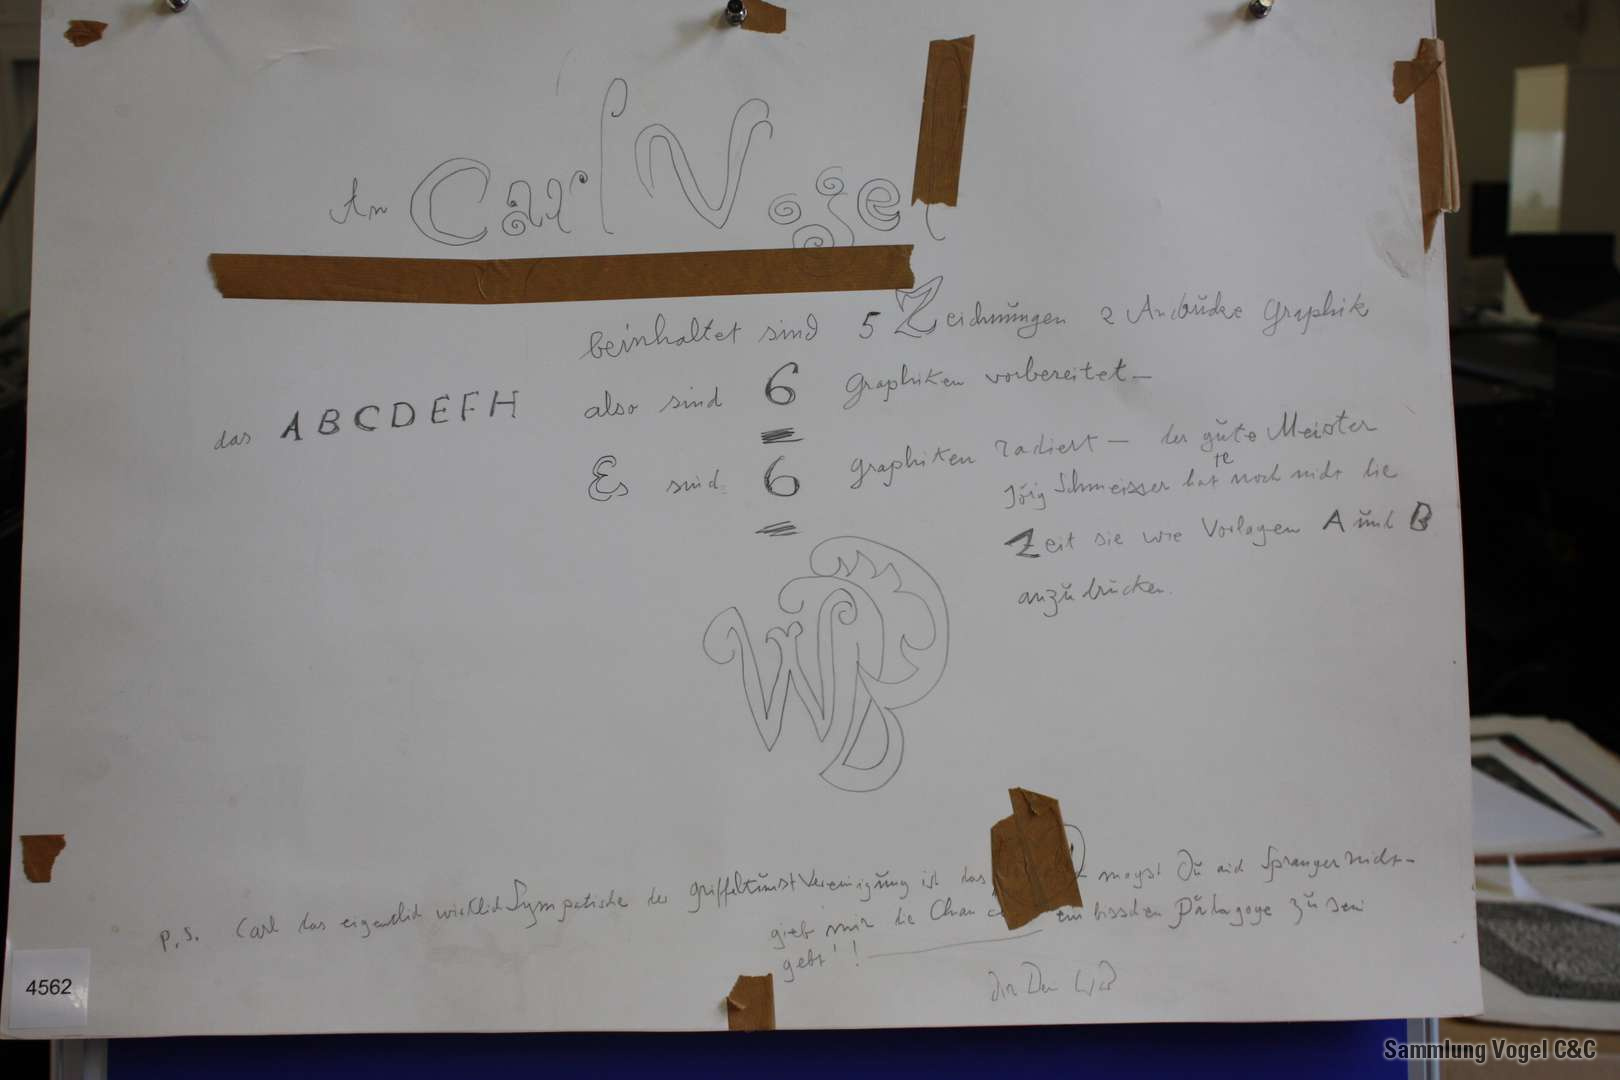 An Carl Vogel
beinhaltet sind 5 Zeichnungen 2 Andrucke Graphik
das ABCDEFH also sind 6 Graphiken vorbereitet —
Es sind 6 graphiken radiert — der gute Meister
Jörg Schmeisser hatte noch nicht die
Zeit sie wie Vorlagen A und B
anzudrucken.
p.s. Carl das eigentlich wirklich Sympatische der griffelkunst Vereinigung ist das magst Du auch Spranger nicht —
gieb mir die ein bisschen Pädagoge zu sein
geht!!
WD
4562
Sammlung Vogel C&C